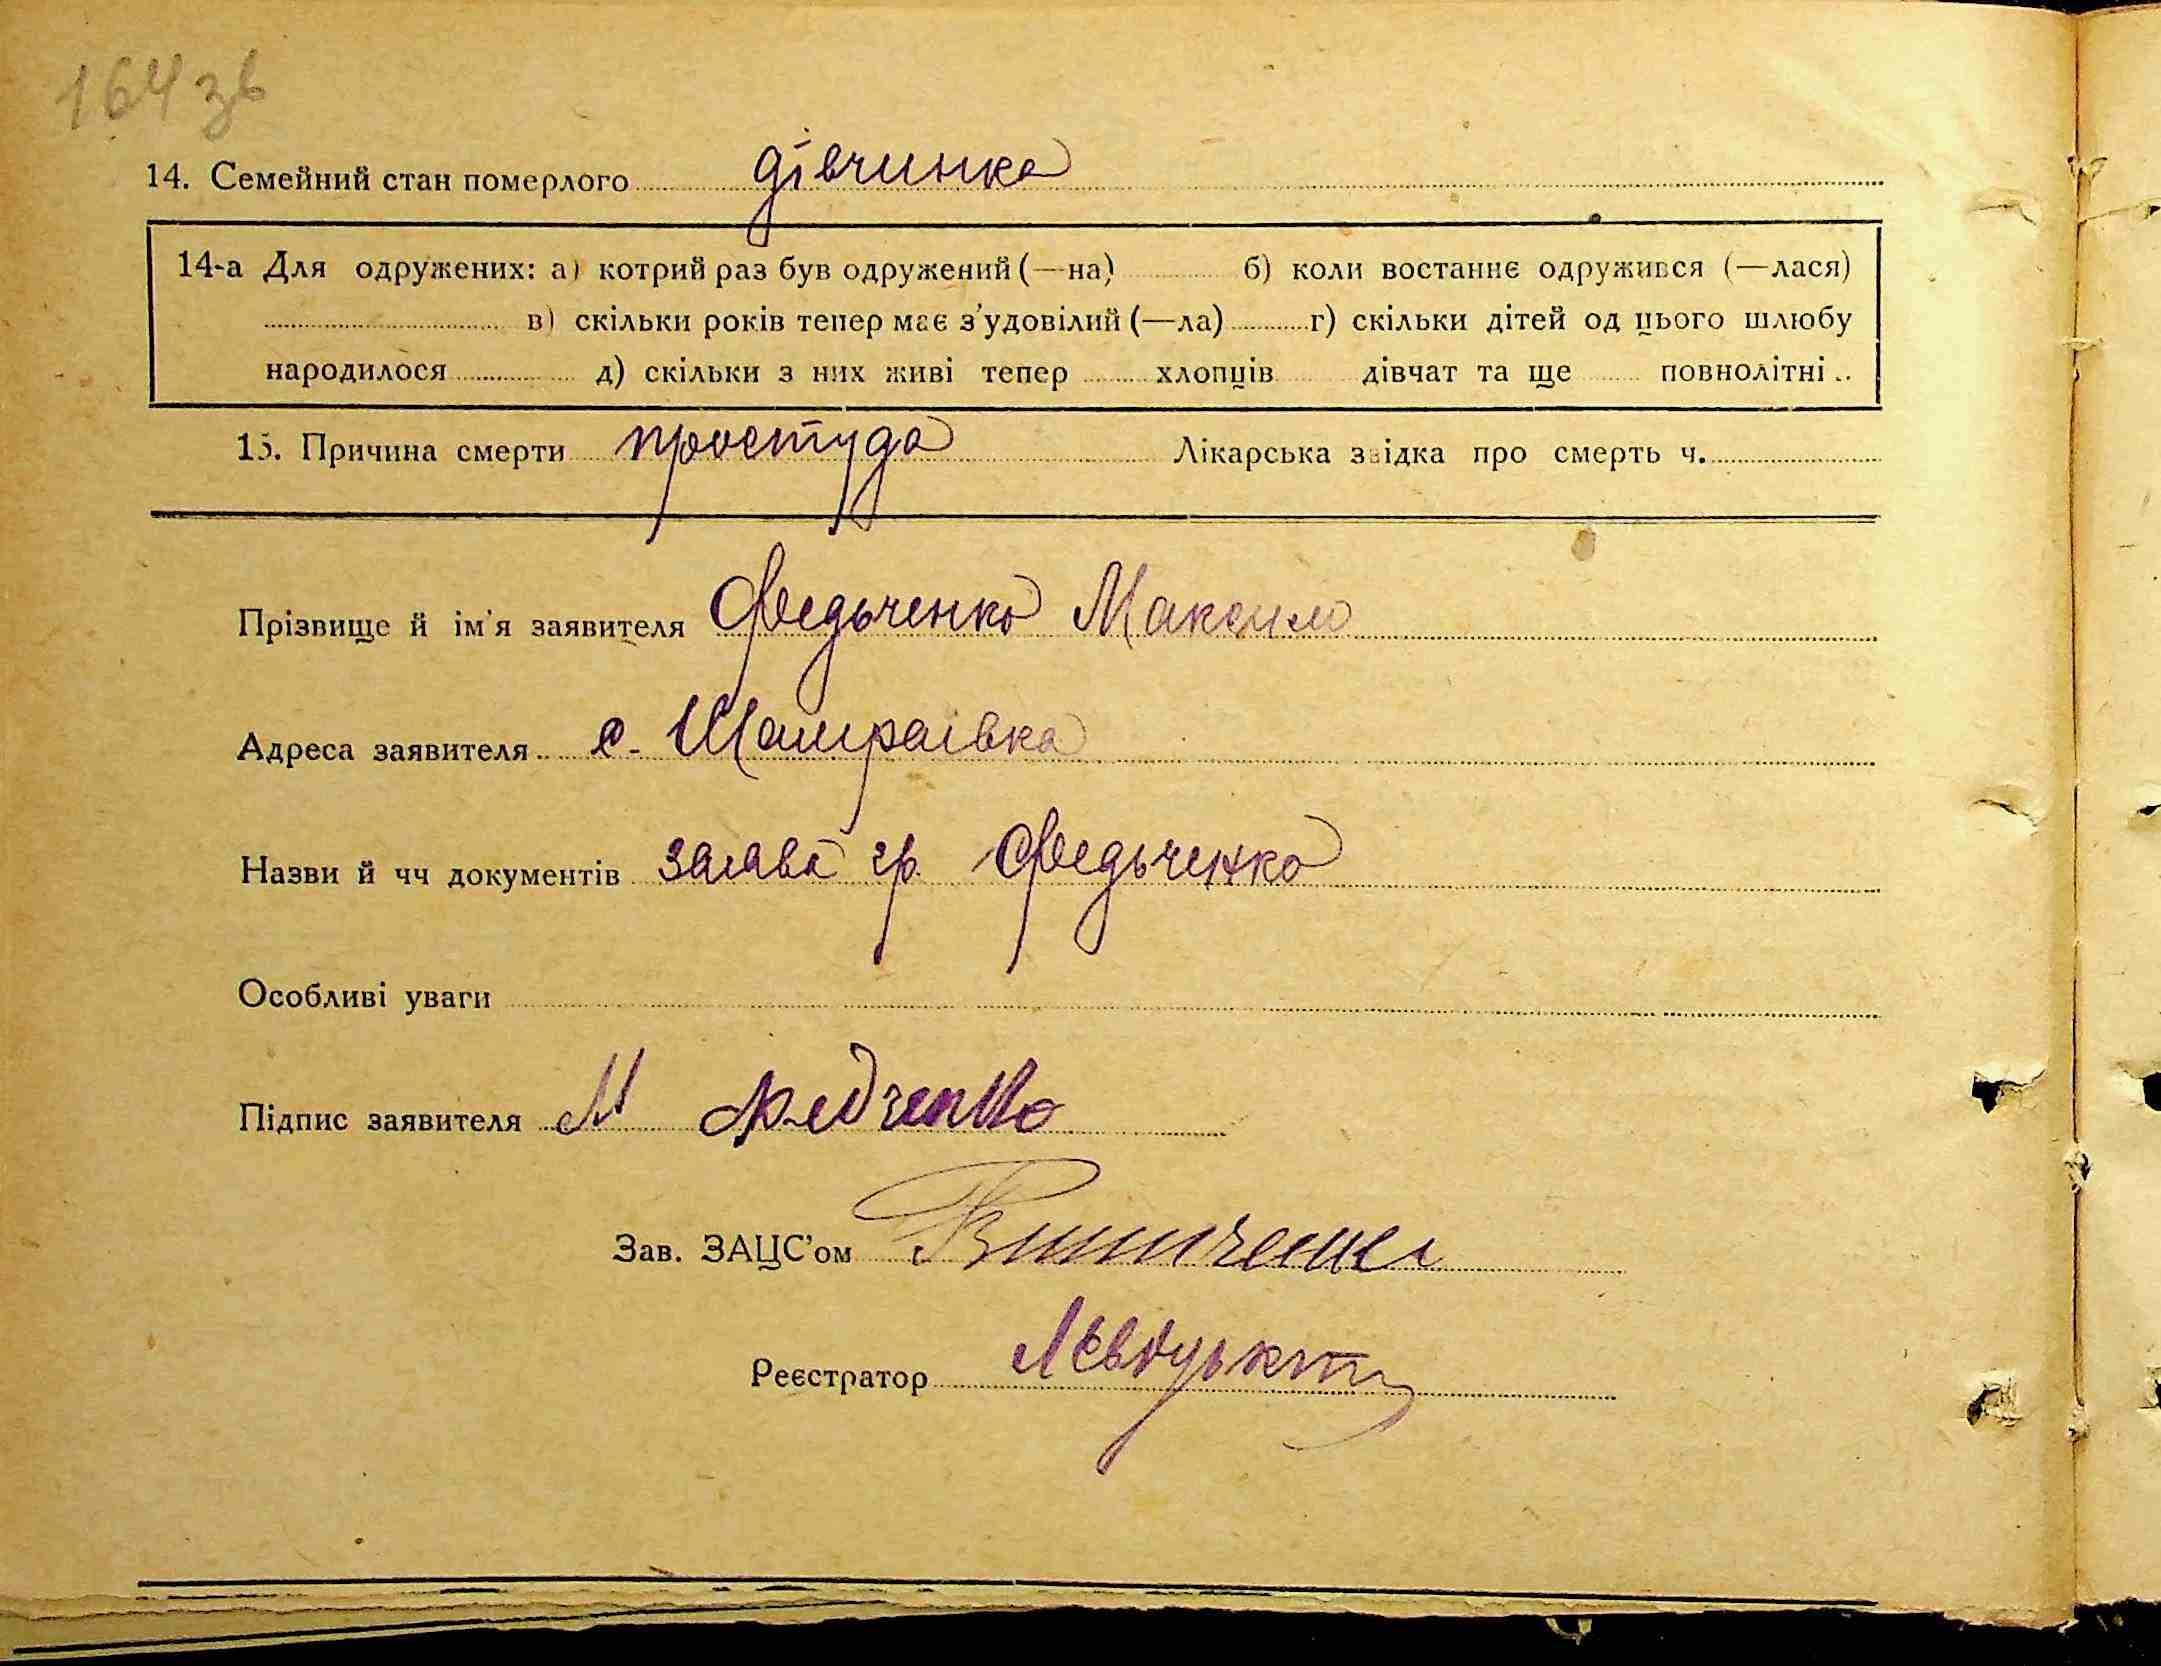 164 зв
14. Семейний стан померлого дівчинка
14-а Для одружених: а) котрий раз був одружений (—на) б) коли востаннє одружився (—лася)
в) скільки років тепер має з'удовілий (—ла) г) скільки дітей од цього шлюбу
народилося д) скільки з них живі тепер хлопців дівчат та ще повнолітні
15. Причина смерти простуда Лікарська звідка про смерть ч.
Прізвище й ім'я заявителя Федьченко Максим
Адреса заявителя с. Шамраївка
Назви й чч документів заява гр. Федьченко
Особливі уваги
Підпис заявителя М Федченко
Зав. ЗАЦС'ом
Реєстратор